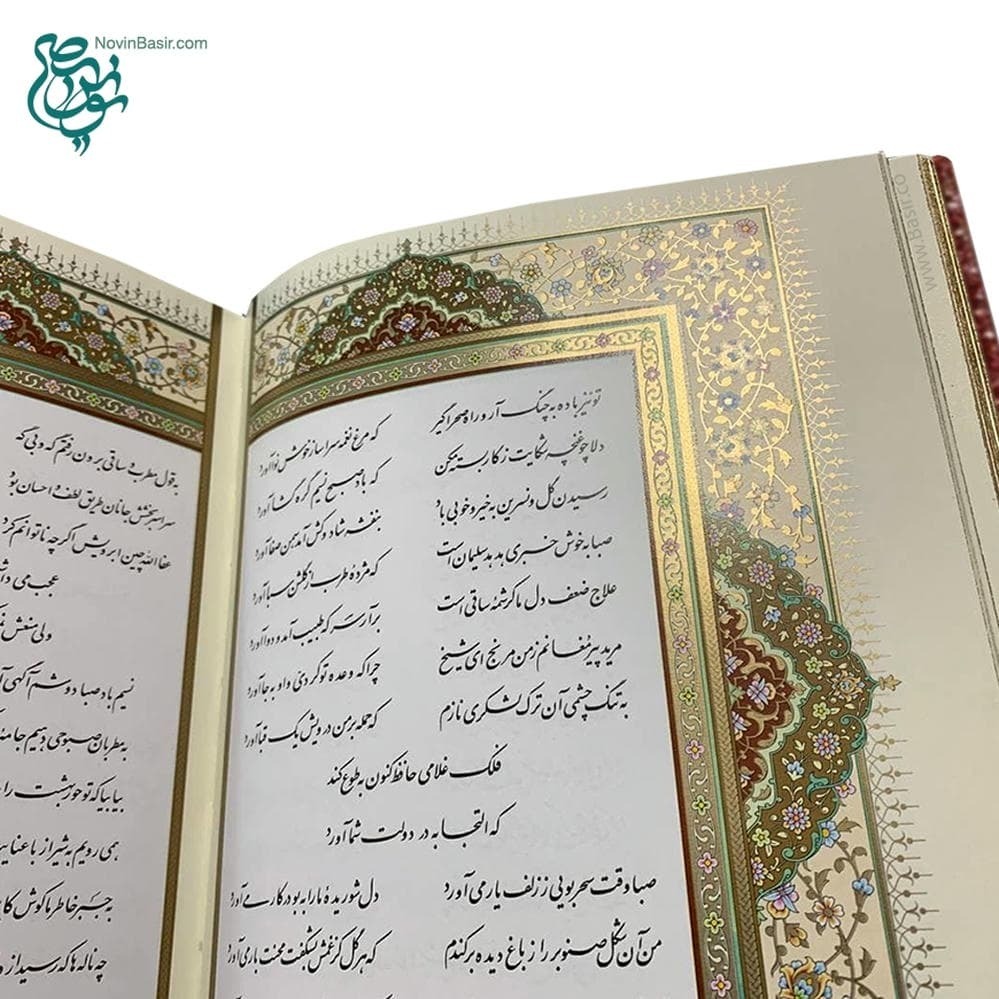 NovinBasir.com
نوین بصیر
www.basir.co
تو نیز باده به چنگ آر و راه صحرا گیر که مرغ نغمه سرا ساز خوش نوا آورد
دلا چو غنچه شکایت ز کار بسته مکن که باد صبح نسیم گره گشا آورد
رسیدن گل و نسرین به خیر و خوبی باد بنفشه شاد و کش آمد سمن صفا آورد
صبا به خوش خبری هدهد سلیمان است که مژدهٔ طرب از گلشن سبا آورد
علاج ضعف دل ما کرشمهٔ ساقی است برآر سر که طبیب آمد و دوا آورد
مرید پیر مُغانم ز من مرنج ای شیخ چرا که وعده تو کردی و او به جا آورد
به تنگ چشمی آن ترک لشکری نازم که حمله بر من درویش یک قبا آورد
فلک غلامی حافظ کنون به طوع کند
که التجا به در دولت شما آورد
صبا وقت سحر بویی ز زلف یار می آورد دل شوریدهٔ ما را به بو در کار می آورد
من آن شکل صنوبر را ز باغ دیده برکندم که هر گل کز غمش بشکفت محنت باری آورد
به قول مطرب و ساقی برون رفتم گه و بی گه
سراسر بخشش جانان طریق لطف و احسان بود
عفا الله چین ابرویش اگر چه ناتوانم کرد
عجب می
ولی منعش
نسیم باد صبا دوشم آگهی
به مطربان صبوحی دهیم جامهٔ
بیا بیا که تو حور بهشت را
همی رویم به شیراز با
به جَبر خاطر ما کوش
چه ناله ها که رسید از